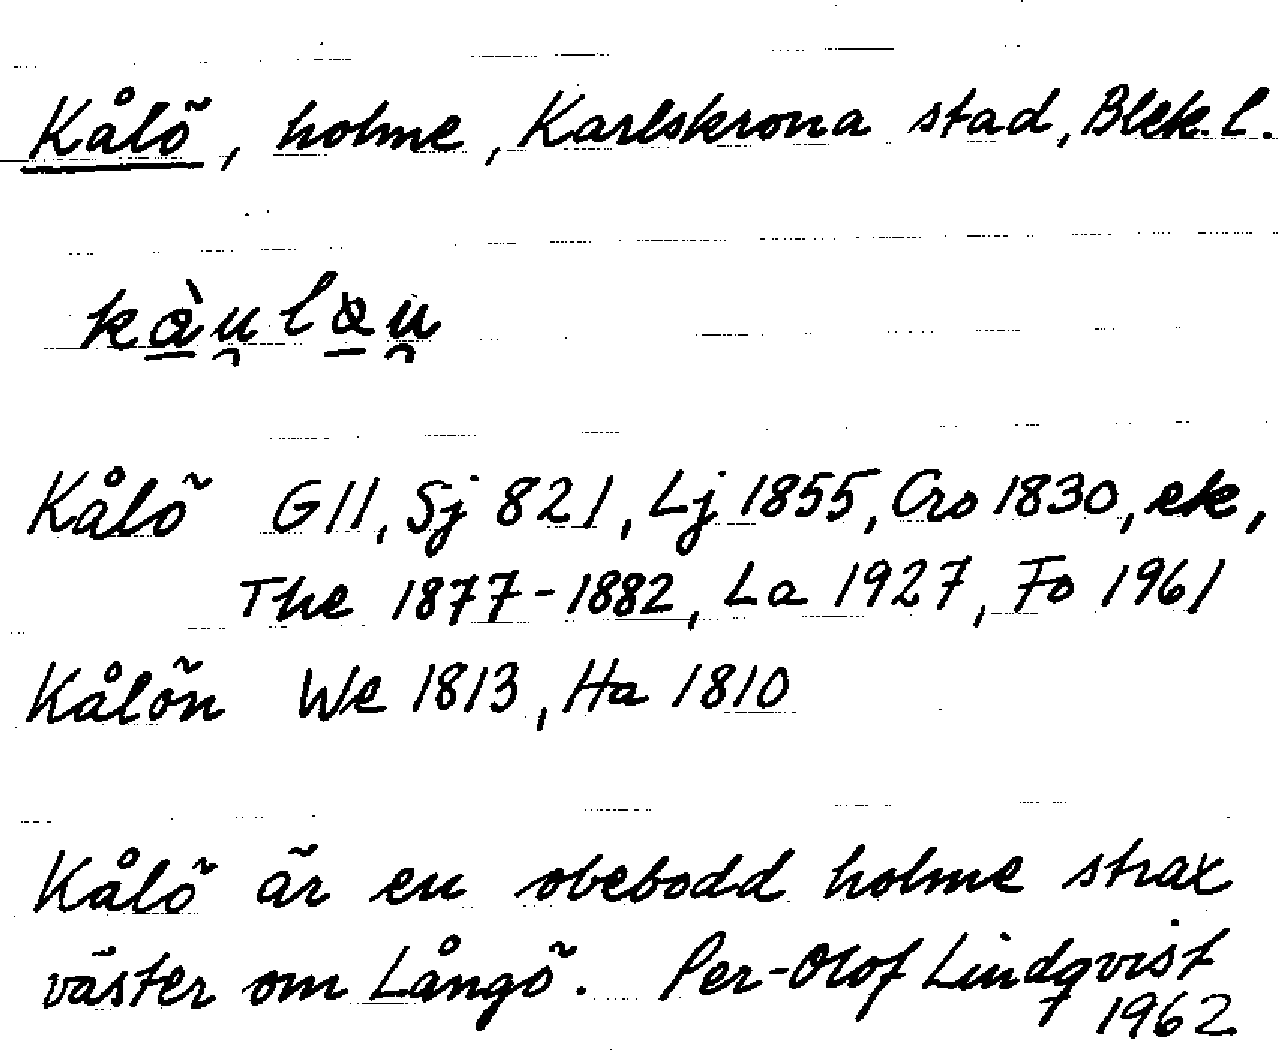 Kålö, holme, Karlskrona stad, Blek. l.
kà̱u̯la̱u̯
Kålö G11, Sj 821, Lj 1855, Cro 1830, ek,
The 1877-1882, La 1927, Fo 1961
Kålön We 1813, Ha 1810
Kålö är en obebodd holme strax
väster om Långö. Per-Olof Lindqvist
1962